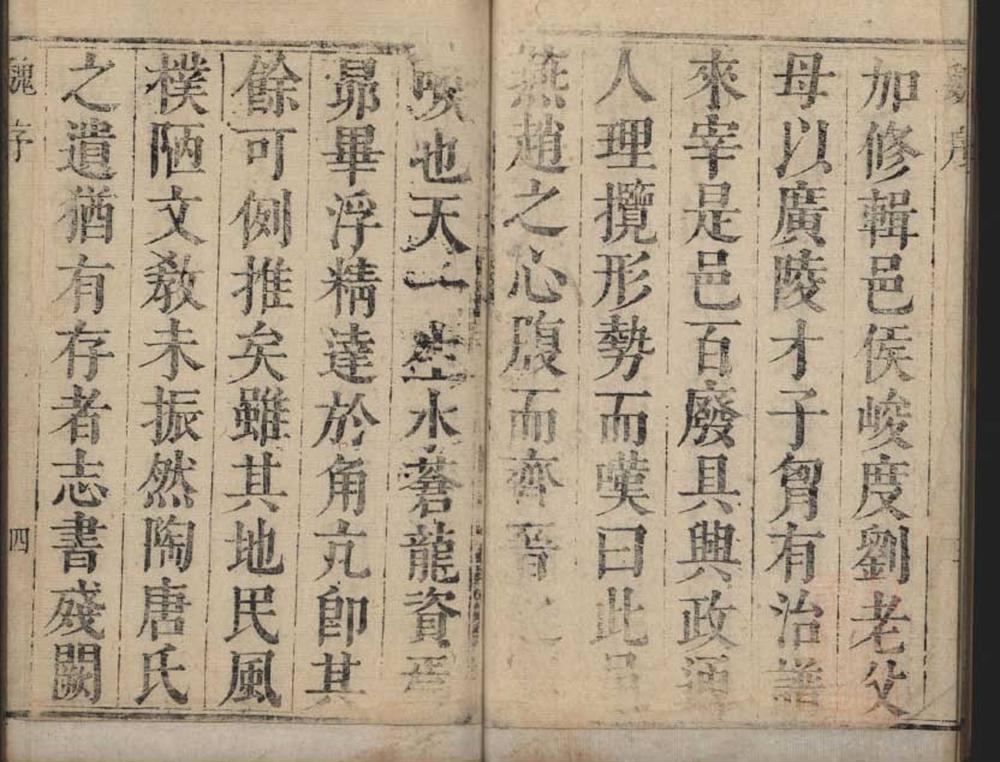 加修輯邑侯峻度劉老父
母以廣陵才子胷有治譜
來宰是邑百廢具興政通
人理攬形勢而嘆曰此
燕趙之心腹而齊晉之
喉也天一生水蒼龍資焉
昴畢浮精達於角亢卽其
餘可例推矣雖其地民風
樸陋文敎未振然陶唐氏
之遺猶有存者志書殘闕
魏序
四